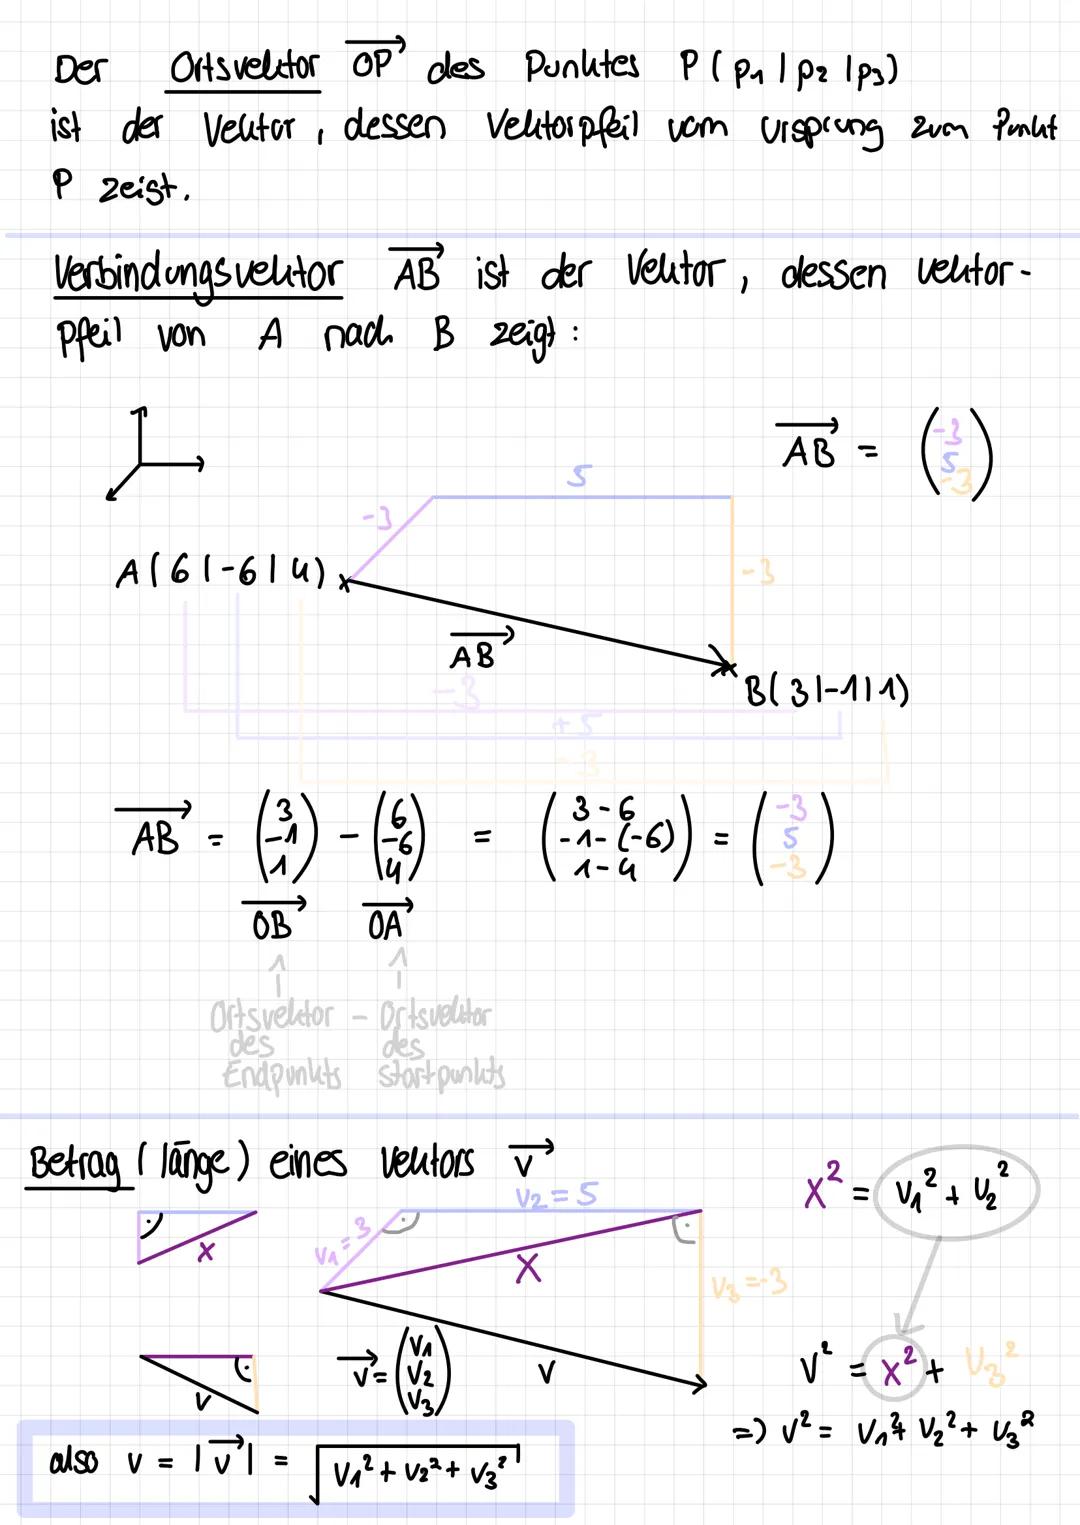 Der Ortsvektor OP des Punktes P( p1 | p2 | p3)
ist der Vektor, dessen Vektorpfeil vom Ursprung zum Punkt
P zeigt.
Verbindungsvektor AB ist der Vektor, dessen Vektor-
pfeil von A nach B zeigt:
AB = (-3 5 -3)
5
-3
A(6|-6|4)
-3
AB
B(3|-1|1)
-3
+5
-3
AB = (3 -1 1) - (6 -6 4) = (3-6 -1-(-6) 1-4) = (-3 5 -3)
OB OA
Ortsvektor - Ortsvektor
des des
Endpunkts Startpunkts
Betrag (länge) eines Vektors v
x² = v1² + v2²
v2 = 5
v1 = 3
x
x
v3 = -3
v = (v1 v2 v3)
v
v
v² = x² + v3²
=> v² = v1² + v2² + v3²
also v = |v| = √v1² + v2² + v3²